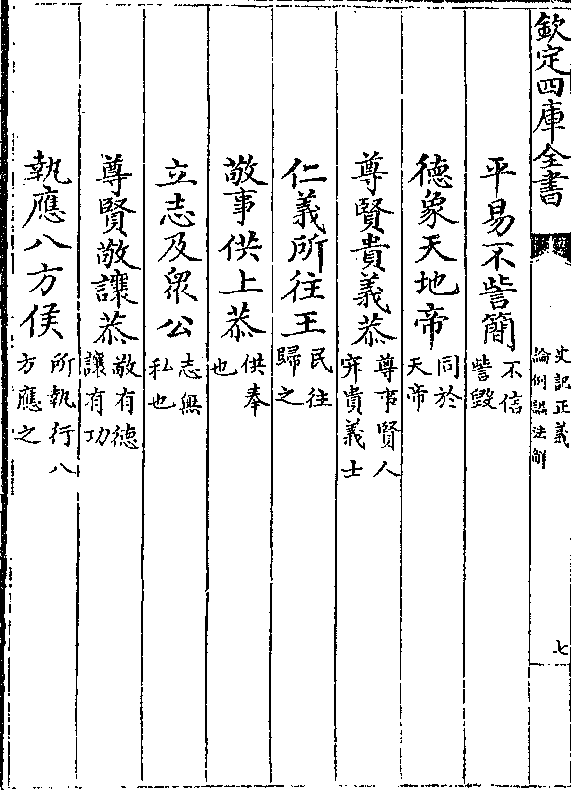 欽定四庫全書
史記正義
論例諡法解
七
平易不訾簡 不信訾毀
德象天地帝 同於天帝
尊賢貴義恭 尊事賢人寵貴義士
仁義所往王 民往歸之
敬事供上恭 供奉也
立志及眾公 志無私也
尊賢敬讓恭 敬有德讓有功
執應八方侯 所執行八方應之